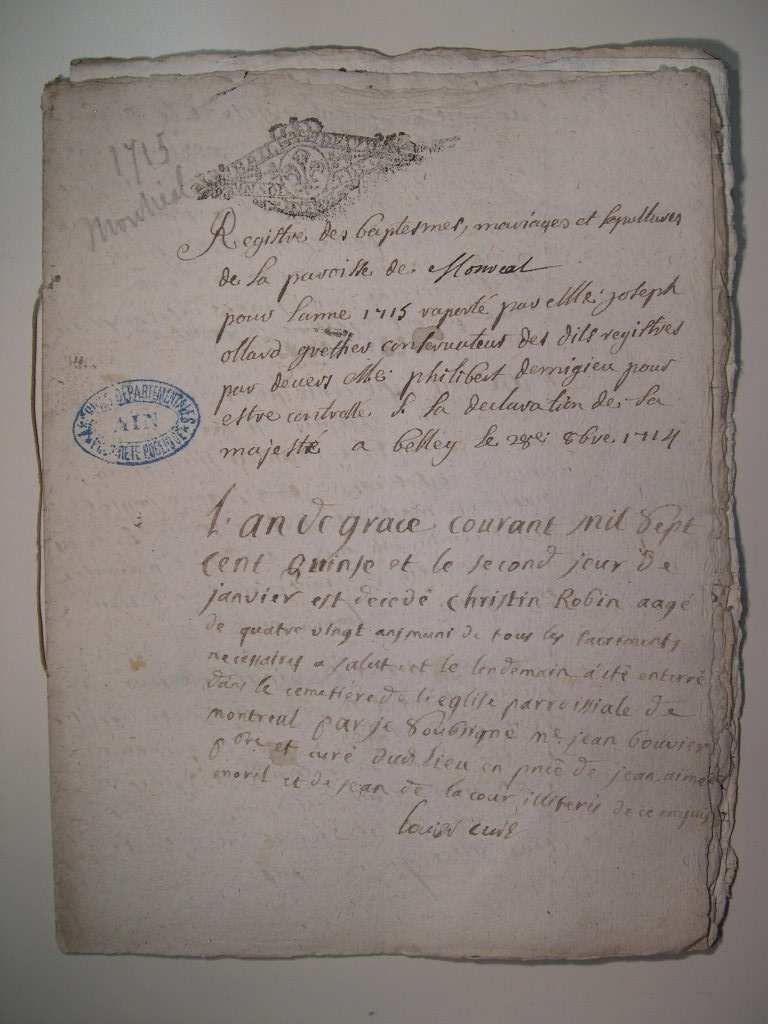 1715
Montreal
Registre des baptesmes, mariages et sepultures
de la paroisse de Monreal
pour lanne 1715 raporté par Me: joseph
ollard greffier conservateur des dits registres
par devers Me: philibert demigieu pour
estre controlle S. la declaration de sa
majesté a belley le 28e: 8bre. 1714
ARCHIVES DÉPARTEMENTALES
AIN
PROPRIÉTÉ PUBLIQUE
l'an de grace courant mil sept
cent quinse et le second jour de
janvier est decedé christin Robin aagé
de quatre vingt ans muni de tous les sacrements
necessaires a salut et le lendemain a été enterré
dans le cemetiére de l'eglise parroissiale de
montreal par je soubsigné me. jean bouvier
pbre et curé dud lieu en pnce de jean aimé
moril et de jean de lacour, illiteris de ce enquis
curé